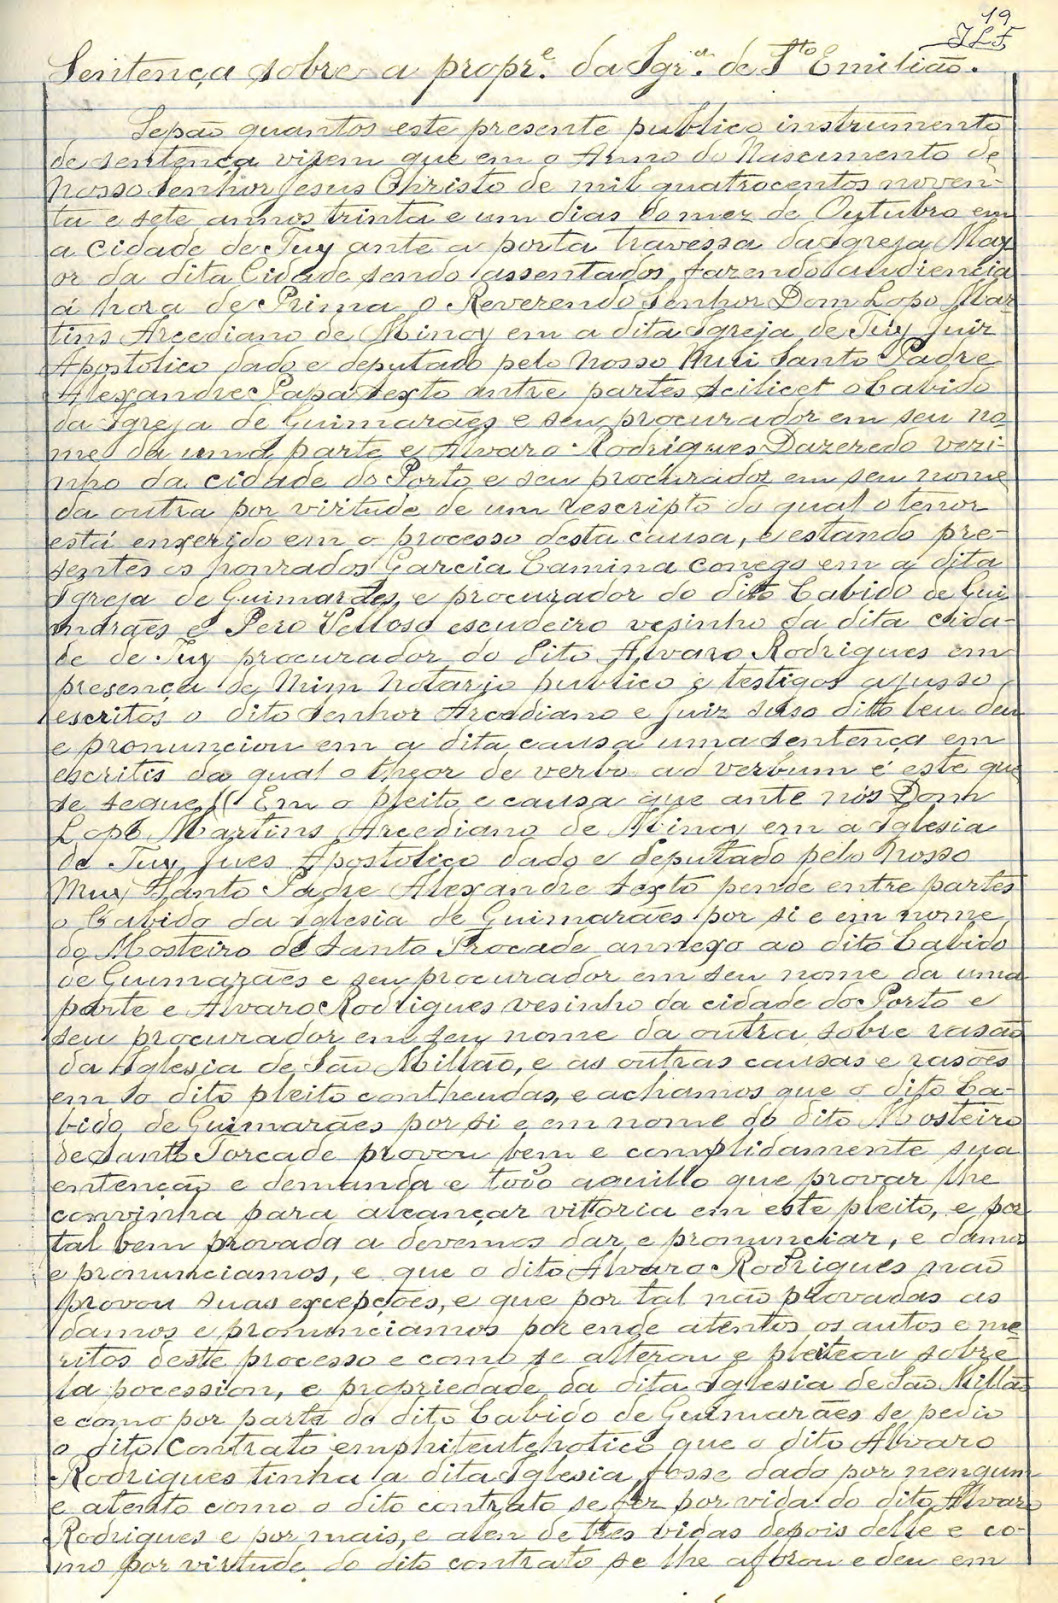 19
JLF
Sentença sobre a propr.e da Igr.a de Sto Emilião.
Sepão quantos este presente publico instrumento
de sentença virem que em o Anno do Nascimento de
Nosso Senhor Jesus Christo de mil quatrocentos noven-
ta e sete annos trinta e um dias do mez de Oytubro em
a cidade de Tuy ante a porta travessa da Igreja May-
or da dita Cidade sendo assentados, fazendo audiencia
á hora de Prima o Reverendo Senhor Dom Lopo Mar-
tins Arcediano de Minoy em a dita Igreja de Tuy Juiz
Apostolico dado e deputado pelo nosso Mui Santo Padre
Alexandre Papa sexto entre partes scilicet o Cabido
da Igreja de Guimarães e seu procurador em seu no-
me da uma parte e Alvaro Rodrigues Dazeredo vezi-
nho da cidade do Porto e seu procurador em seu nome
da outra por virtude de um rescripto do qual o tenor
está enxerido em o processo desta causa, e estando pre-
sentes os honrados Garcia Camina conego em a dita
Igreja de Guimarães, e procurador do dito Cabido de Gui-
marães e Pero Velloso escudeiro vesinho da dita cida-
de de Tuy procurador do dito Alvaro Rodrigues em
presença de Mim Notario publico e testigos ajusso
escritos o dito Senhor Arcediano e Juiz suso dito leu deu
e pronunciou em a dita causa uma sentença em
escritis da qual o theor de verbo ad verbum é este que
se segue (( Em o pleito e causa que ante nós Dom
Lopo Martins Arcediano de Minoy em a Iglesia
de Tuy Jues Apostolico dado e deputado pelo nosso
Muy Santo Padre Alexandre sexto pende entre partes
o Cabido da Iglesia de Guimarães por si e em nome
do Mosteiro de Santo Trocade annexo ao dito Cabido
de Guimarães e seu procurador em seu nome da uma
parte e Alvaro Rodrigues vesinho da cidade do Porto e
seu procurador em seu nome da outra sobre rasão
da Iglesia de São Millão, e as outras causas e rasões
em o dito pleito contheudas, e achamos que o dito Ca-
bido de Guimarães por si e em nome do dito Mosteiro
de Santo Torcade provou bem e complidamente sua
entenção e demanda e todo aquillo que provar lhe
convinha para alcançar vittoria em este pleito, e por
tal bem provada a devemos dar e pronunciar, e damos
e pronunciamos, e que o dito Alvaro Rodrigues não
provou suas excepções, e que por tal não provadas as
damos e pronunciamos por ende atentos os autos e me-
ritos deste processo e como se alterou e pleiteou sobre
la pocession, e propriedade da dita Iglesia de São Millão
e como por parte do dito Cabido de Guimarães se pedio
o dito contrato emphiteutchotico que o dito Alvaro
Rodrigues tinha a dita Iglesia fosse dado por nengun
e atento como o dito contrato se fez por vida do dito Alvaro
Rodrigues e por mais, e alen de tres vidas depois delle e co-
mo por virtude do dito contrato se lhe aforou e deu em